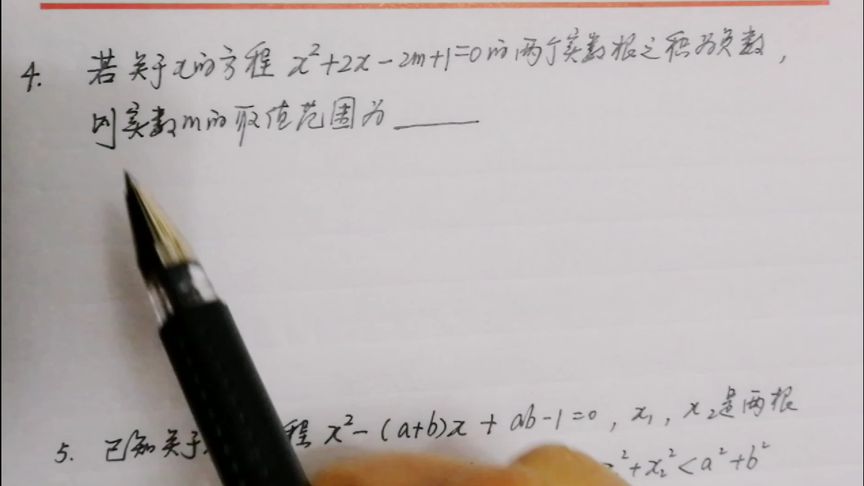 4. 若关于x的方程 x²+2x-2m+1=0的两个实数根之积为负数,
则实数m的取值范围为______
5. 已知关于 程 x²-(a+b)x+ab-1=0, x₁, x₂是两根
²+x₂²<a²+b²